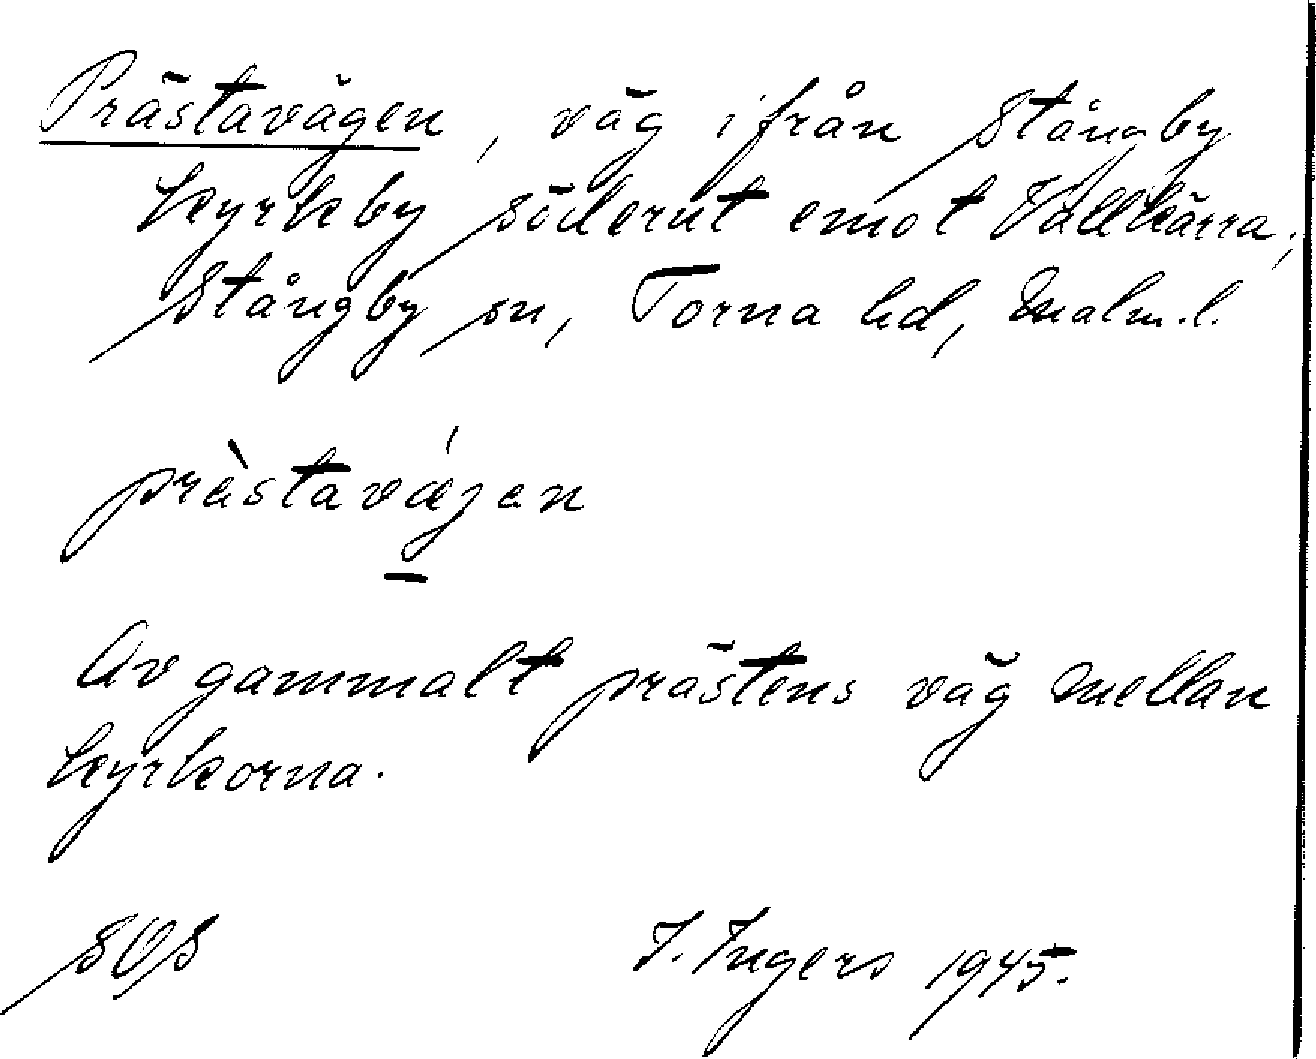 Prästavägen, väg ifrån Stångby
kyrkby söderut emot Vallkärra;
Stångby sn, Torna hd, Malm.l.
pràstavǽjen
Av gammalt prästens väg mellan
kyrkorna.
I. Ingers 1945.